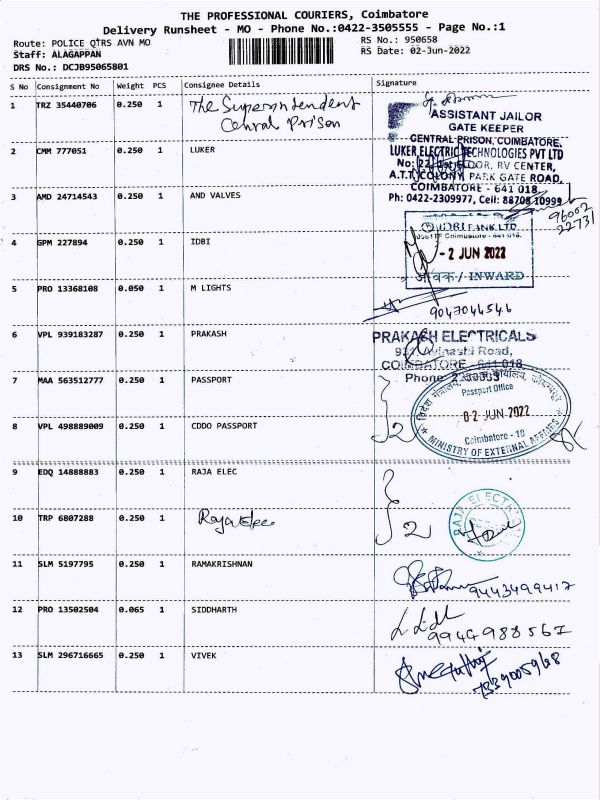 THE PROFESSIONAL COURIERS, Coimbatore
Delivery Runsheet - MO - Phone No.:0422-3505555 - Page No.:1
Route: POLICE QTRS AVN MO
RS No.: 950658
Staff: ALAGAPPAN
RS Date: 02-Jun-2022
DRS No.: DCJB95065801
S No Consignment No Weight PCS Consignee Details Signature
1 TRZ 35440706 0.250 1 The Superintendent
Central Prison
ASSISTANT JAILOR
GATE KEEPER
CENTRAL PRISON, COIMBATORE.
2 CMM 777051 0.250 1 LUKER
LUKER ELECTRIC TECHNOLOGIES PVT LTD
No: 22, 1st FLOOR, RV CENTER,
A.T.T. COLONY PARK GATE ROAD,
COIMBATORE - 641 018.
3 AMD 24714543 0.250 1 AND VALVES
Ph: 0422-2309977, Cell: 88708 10999
96002
22731
4 GPM 227894 0.250 1 IDBI
IDBI BANK LTD
Coimbatore - 641 018.
- 2 JUN 2022
आवक / INWARD
5 PRO 13368108 0.050 1 M LIGHTS
9047044546
6 VPL 939183287 0.250 1 PRAKASH
PRAKASH ELECTRICALS
Avinashi Road,
COIMBATORE - 641 018
Phone
7 MAA 563512777 0.250 1 PASSPORT
Passport Office
02 JUN 2022
Coimbatore - 18
MINISTRY OF EXTERNAL AFFAIRS
8 VPL 498889009 0.250 1 CDDO PASSPORT
2
9 EDQ 14888883 0.250 1 RAJA ELEC
10 TRP 6807288 0.250 1 Raja Elec
2
RAJA ELECTRICAL
11 SLM 5197795 0.250 1 RAMAKRISHNAN
9443499417
12 PRO 13502504 0.065 1 SIDDHARTH
9949988567
13 SLM 296716665 0.250 1 VIVEK
7339005968